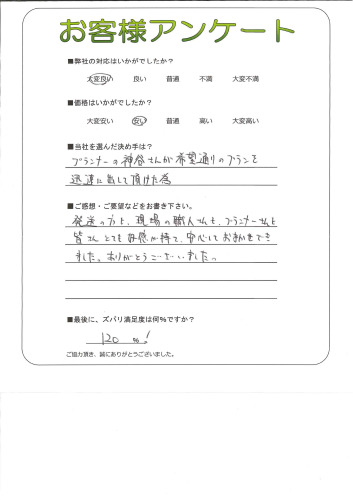 お客様アンケート
■弊社の対応はいかがでしたか?
大変良い 良い 普通 不満 大変不満
■価格はいかがでしたか?
大変安い 安い 普通 高い 大変高い
■当社を選んだ決め手は?
プランナーの神谷さんが希望通りのプランを
迅速に出して頂けた為
■ご感想・ご要望などをお書き下さい。
発送の方も、現場の職人さんも、プランナーさんも
皆さんとても好感が持て、安心してお勧めでき
ました。ありがとうございました。
■最後に、ズバリ満足度は何%ですか?
120 %!
ご協力頂き、誠にありがとうございました。